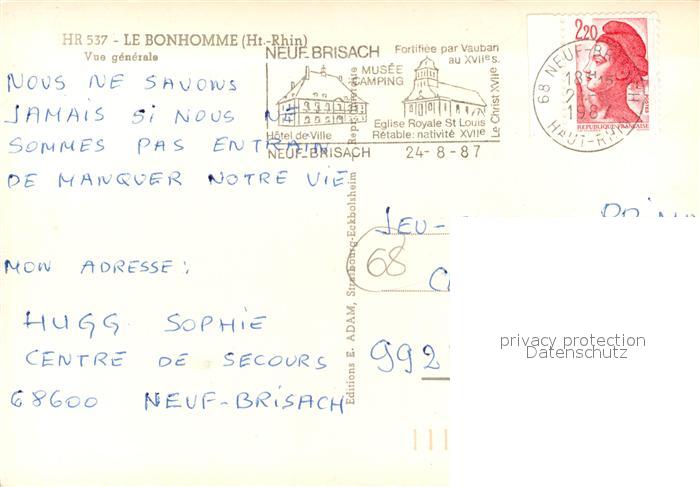 HR 537 - LE BONHOMME (Ht.-Rhin)
Vue générale
NOUS NE SAVONS
JAMAIS SI NOUS NE
SOMMES PAS EN TRAIN
DE MANQUER NOTRE VIE
MON ADRESSE :
HUGG SOPHIE
CENTRE DE SECOURS
68600 NEUF-BRISACH
NEUF.BRISACH
Fortifiée par Vauban
au XVIIe s.
MUSÉE
CAMPING
Hôtel de Ville
Eglise Royale St Louis
Rétable: nativité XVIIe
Le Christ XVIIe
NEUF-BRISACH 24-8-87
2,20
REPUBLIQUE FRANÇAISE
68 NEUF-BR
18H
198
HAUT-RHIN
Editions E. ADAM, Strasbourg-Eckbolsheim
JEU-
68
992
privacy protection
Datenschutz